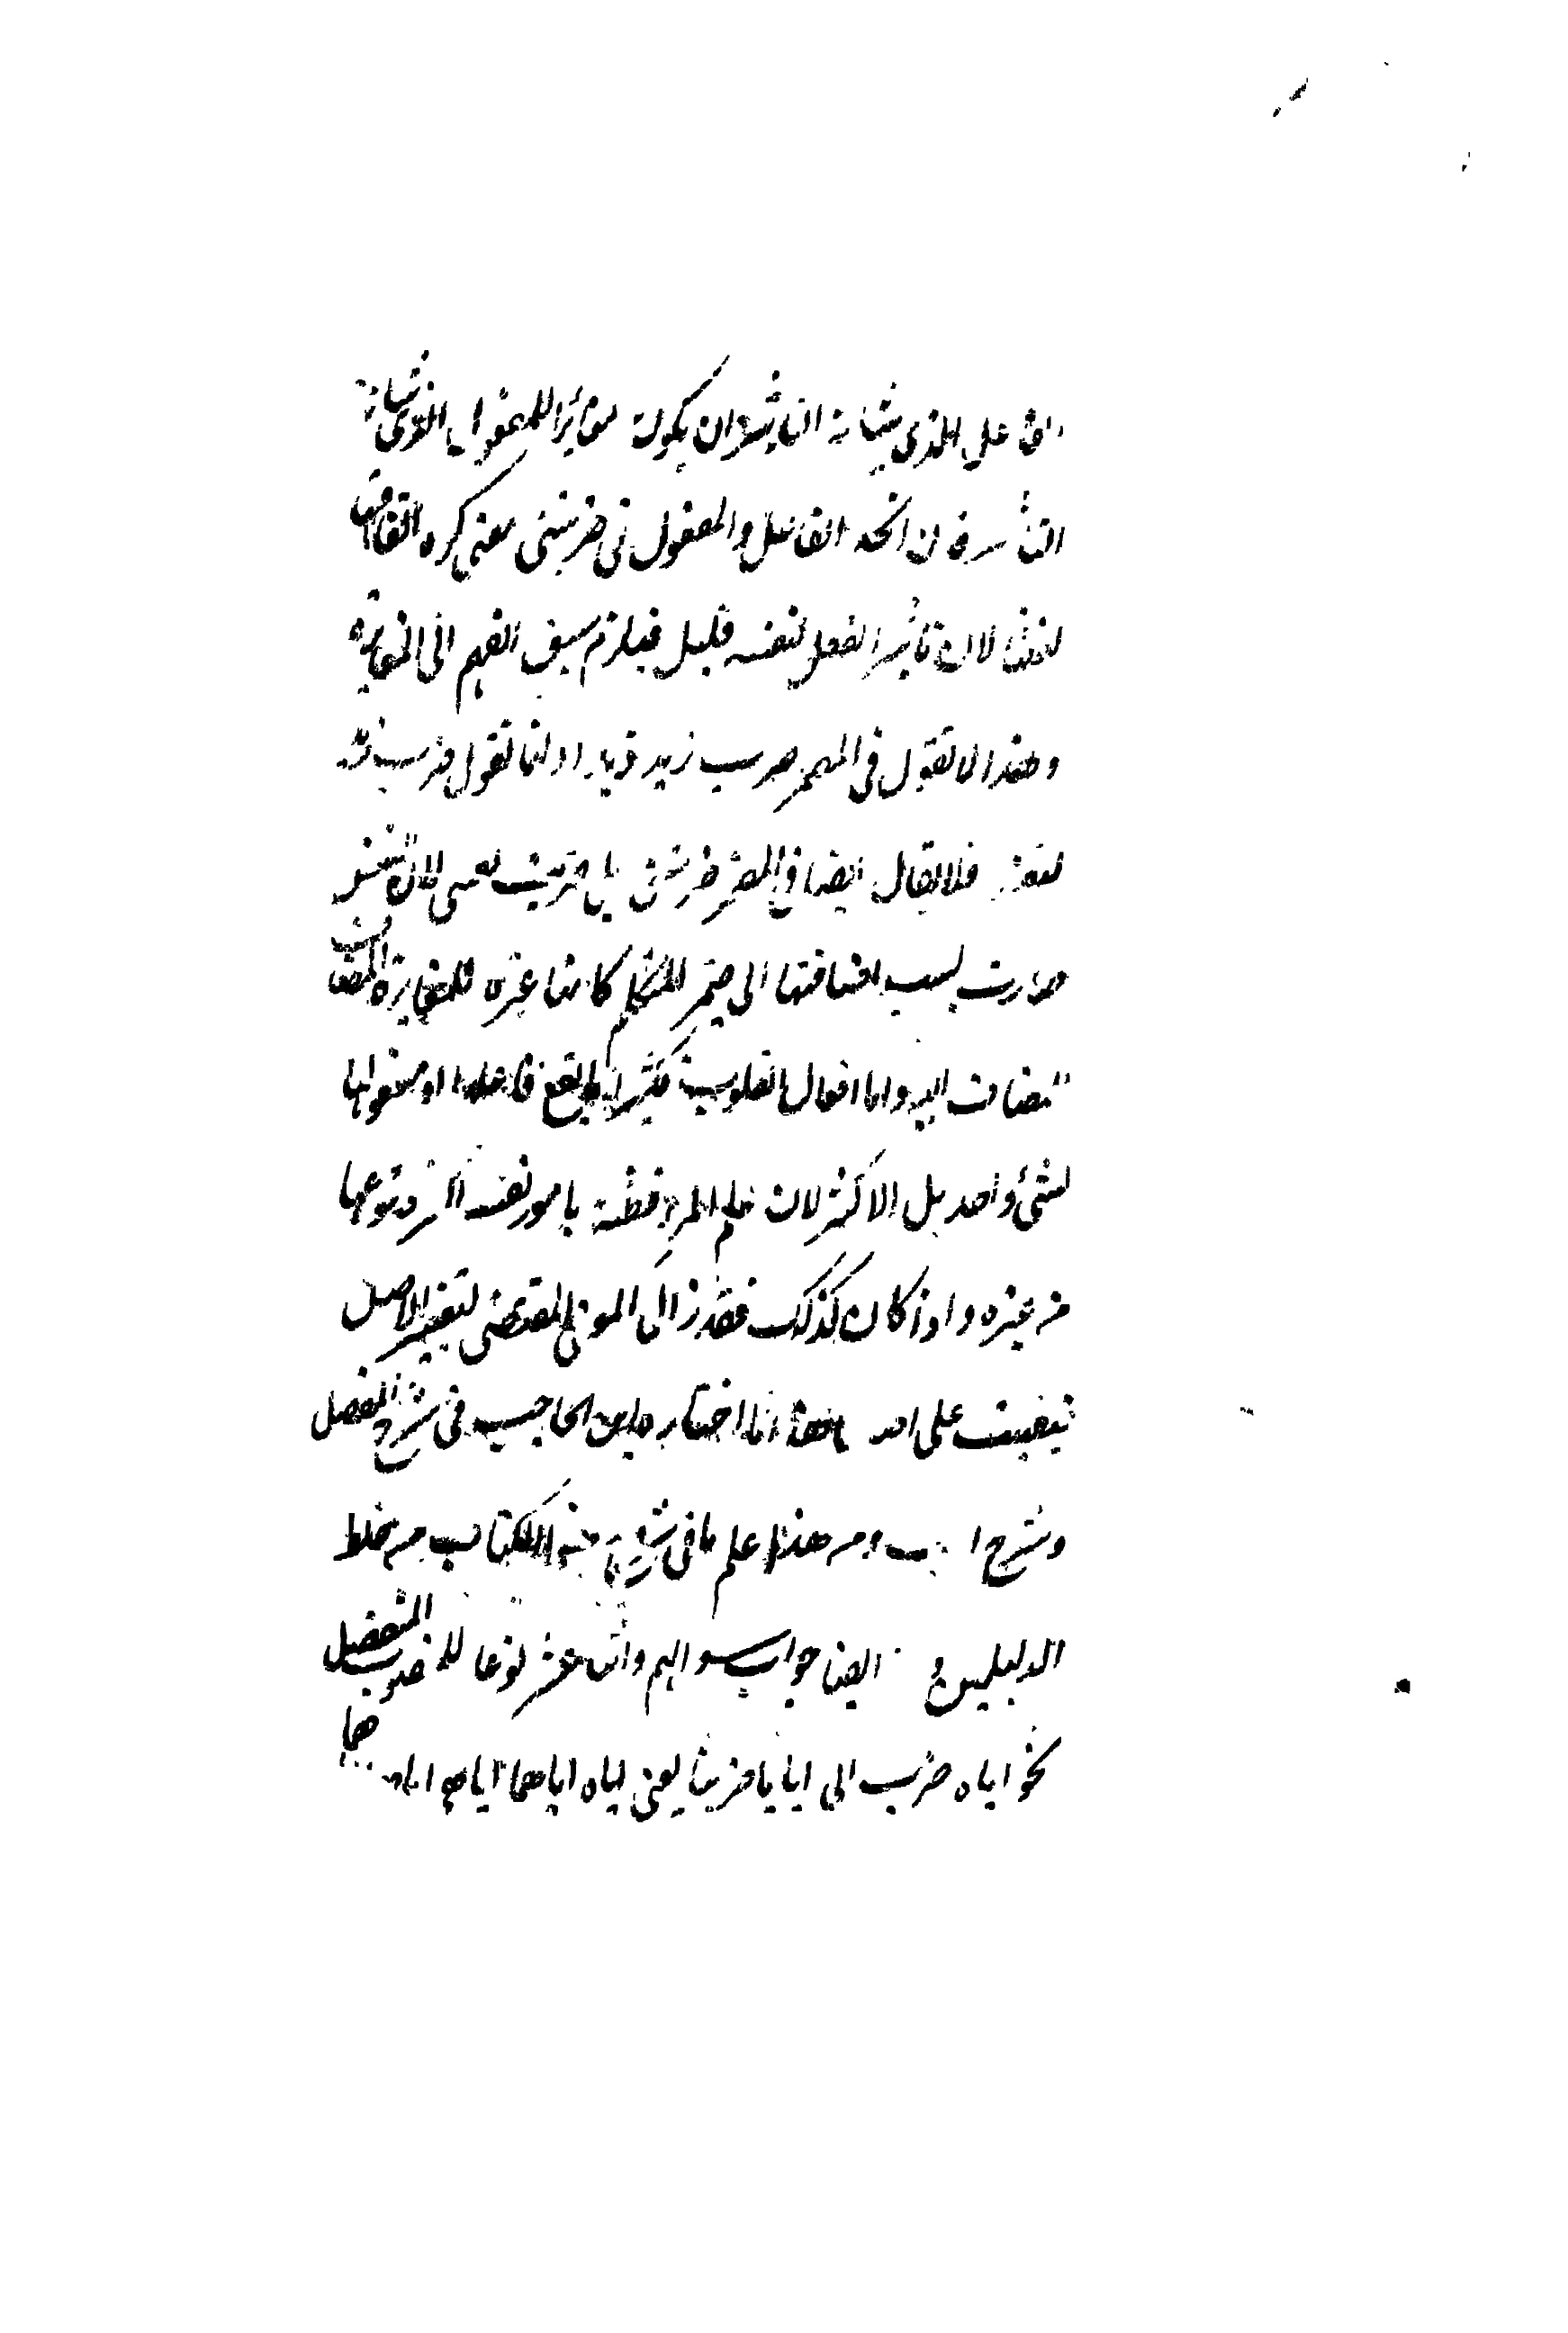 على الذي شانه التاثير ان يكون مؤثرا للمفعول الذي شانه
التأثر فان اتحد الفاعل والمفعول في ضربتني معنى كره اتفاقهما
لفظا لان تاثير الفعل لنفسه قليل فيلزم سبق الفهم الى المغايرة
ولهذا لا تقول في المضمر ضرب زيد زيدا وانما تقول ضرب زيد
نفسه فلا يقال ايضا في المضمر ضربتني بل ضربت نفسي لان النفس
صارت بسبب اضافتها الى ضمير المتكلم كانها غيره لمغايرة المضاف
المضاف اليه واما افعال القلوب فكثيرا ما يقع فاعلها ومفعولها
لشئ واحد بل الاكثر لان علم المرء وظنه بامور نفسه اكثر وقوعها
من غيره واذا كان كذلك فقد زال المونع المقتضى لتغيير الاصل
فبقيت على اصلها هذا ما اختاره ابن الحاجب في شرح المفصل
وشرح ومن هذا علم ما في شرح هذا الكتاب من خلط
الدليلين ايضا جواب سوالهم واثنا عشر نوعا للمنصوب المنفصل
نحو اياه ضرب الى ايانا ضربنا يعنى اياه اياهما اياهم اياها
هما